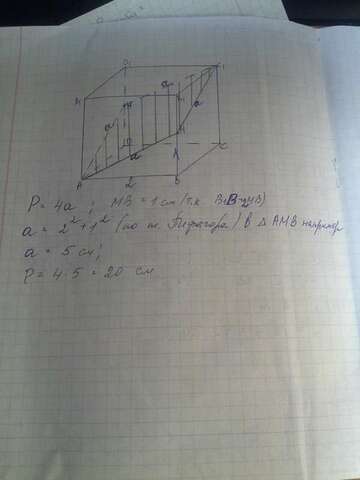 A
B
C
a
a
a
2
P = 4a ; MB = 1 см (т.к. B₁B=2MB)
a = 2² + 1² (по т. Пифагора) в Δ AMB например
a = 5 см;
P = 4 · 5 = 20 см